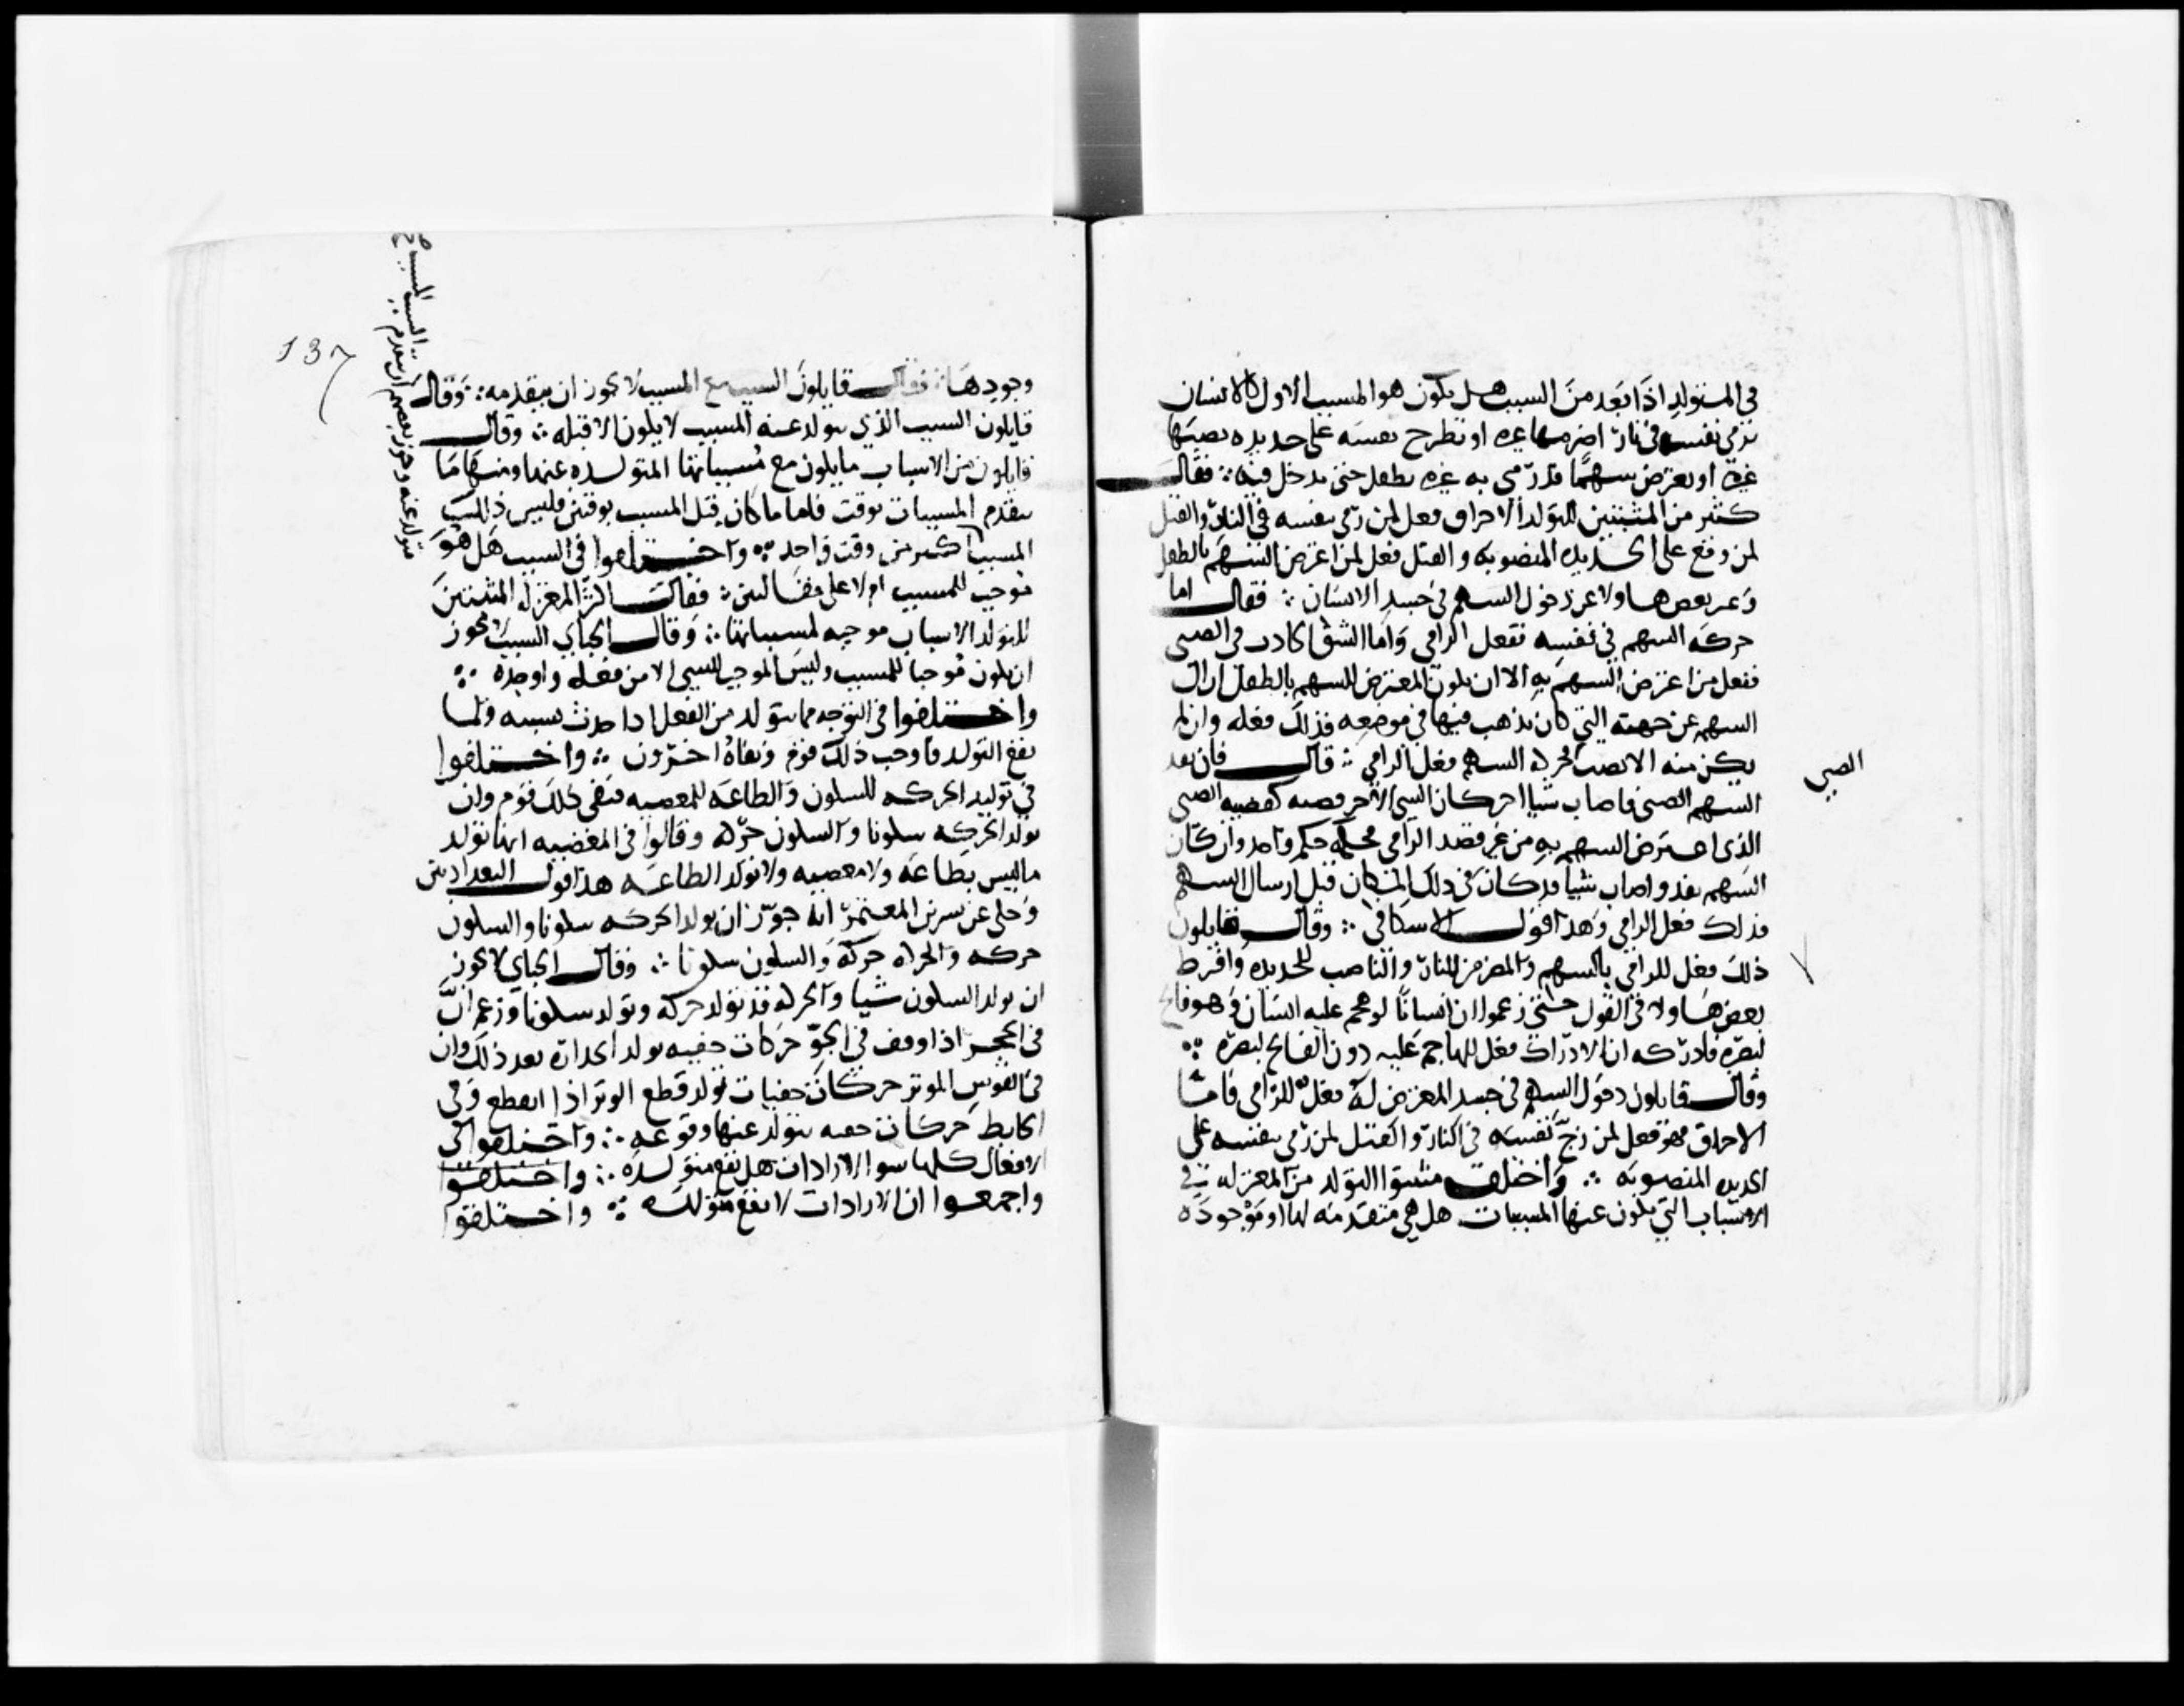 في المتولد اذا بعد من السبب هل يكون هو المسبب الاول كالانسان
يرمي نفسه في نار اضرمها غيره او يطرح نفسه على حديده نصبها
غيره او يعترض سهمًا قد رمى به غيره بطفل حتى يدخل فيه ∴ فقال
كثير من المثبتين للتولد الاحراق فعل لمن رمى بنفسه في النار والقتل
لمن وقع على الحديده المنصوبه والقتل فعل لمن اعترض السهم بالطفل
وعبر بعض هاولا عن دخول السهم في جسد الانسان ∴ فقال اما
حركه السهم في نفسه ففعل الرامي واما الشق الحادث في الصبي
ففعل من اعترض السهم به الا ان يكون المعترض للسهم بالطفل ازال
السهم عن جهته التي كان يذهب فيها في موضعه فذلك فعله وان لم
يكن منه الا نصب فحركه السهم فعل الرامي ∴ قال فان نفد
السهم الصبي فاصاب شيا احر كان الشي الاخر قصته كقصيه الصبي
الصبي
الذي اعترض السهم به من غير قصد الرامي فحكمه حكم واحد وان كان
السهم نفد واصاب شيا قد كان في ذلك المكان قبل ارسال السهم
فذلك فعل الرامي وهذا قول الاسكافي ∴ وقال قايلون
ذلك فعل للرامي بالسهم والمضرم للنار والناصب للحديده وافرط
بعض هاولا في القول حتى زعموا ان انسانًا لو هجم عليه انسان وهو فاتح
لبصره فادركه ان الادراك فعل للهاجم عليه دون الفاتح لبصره ∴
وقال قايلون دخول السهم في جسد المعترض له فعل للرامي فاما
الاحراق فهو فعل لمن زج نفسه في النار والقتل لمن رمى بنفسه على
الحديده المنصوبه ∴ واختلف مثبتوا التولد من المعتزله في
الاسباب التي يكون عنها المسببات هل هي متقدمه لها او موجوده
137
وجودها ∴ فقال قايلون السبب مع المسبب لا يجوز ان يتقدمه ∴ وقال
قايلون السبب الذي يتولد عنه المسبب لا يكون الا قبله ∴ وقال
قايلون من الاسباب ما يكون مع مسبباتها المتولده عنها ومنها ما
يتقدم المسببات بوقت فاما ما كان قبل المسبب بوقتين فليس ذلك سبب
متولد عنه وجوز بعضهم ان يتقدم السبب المسبب
المسبب اكثر من وقت واحد ∴ واختلفوا في السبب هل هو
موجب للمسبب ام لا على مقالتين ∴ فقالت اكثر المعتزله المثبتين
للتولد الاسباب موجبه لمسبباتها ∴ وقال الجباي السبب لا يجوز
ان يكون موجبا للمسبب وليس الموجب للشي الا من فعله واوجده ∴
واختلفوا في التوبه مما يتولد من الفعل اذا حدث سببه ولما
يقع التولد فاوجب ذلك قوم ونفاه اخرون ∴ واختلفوا
في توليد الحركه للسكون والطاعه للمعصيه فنفى ذلك قوم وان
تولد الحركه سكونا والسكون حركه وقالوا في المعصيه انها تولد
ما ليس بطاعه ولا معصيه ولا تولد الطاعه هذا قول البغداديين
وحكي عن بشر بن المعتمر انه جوز ان تولد الحركه سكونا والسكون
حركه والحركه حركه والسكون سكونا ∴ وقال الجباي لا يجوز
ان يولد السكون شيا والحركه قد تولد حركه وتولد سكونا وزعم ان
في الحجر اذا وقف في الجو حركات خفيه تولد انحداره بعد ذلك وان
في القوس الموتر حركات خفيات تولد قطع الوتر اذا انقطع وفي
الحايط حركات خفيه يتولد عنها وقوعه ∴ واختلفوا في
الافعال كلها سوا الارادات هل تقع متولده ∴ واختلفوا
واجمعوا ان الارادات لا تقع متولده ∴ واختلفوا